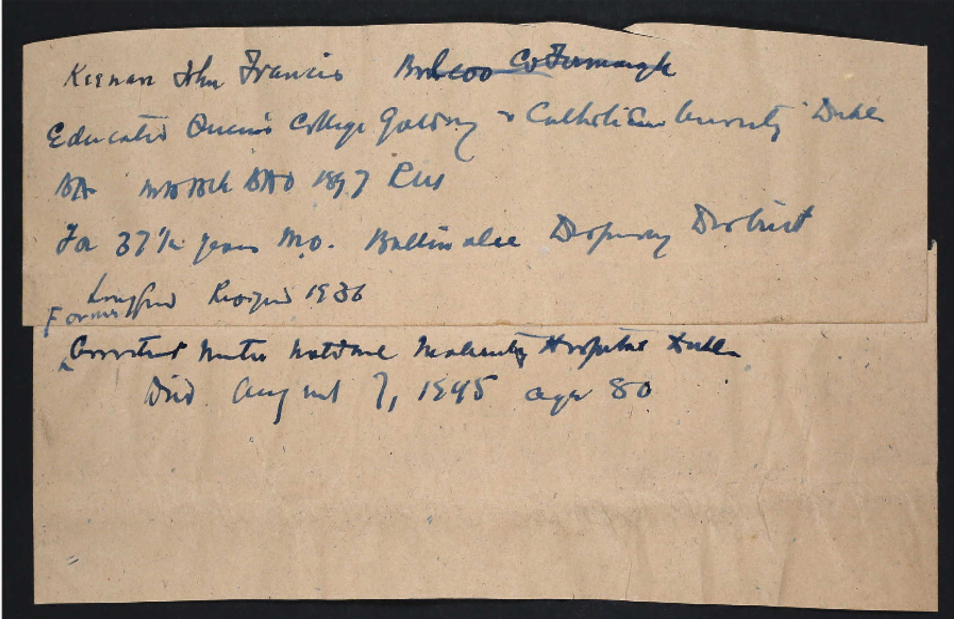 Keenan John Francis Belcoo Co Fermanagh
Educated Queens College Galway & Catholic University Dublin
BA MB BCh BAO 1897 RUI
For 37½ years M.O. Ballinalee Dispensary District
Longford Resigned 1936
Formerly
Assistant Master National Maternity Hospital Dublin
Died August 7, 1945 age 80